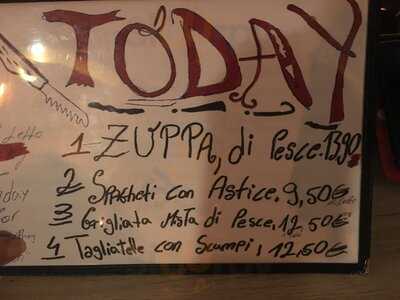 TODAY
1 ZUPPA, di Pesce. 13,90
2 Spagheti con Astice. 9,50€
3 Grigliata Mista di Pesce, 12,50€
4 Tagliatelle con Scampi, 12,50€